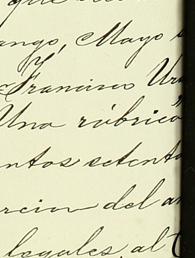 ango, Mayo
y
Francisco Ur
Una rúbrica
ntos setent
rcion del a
legales, al